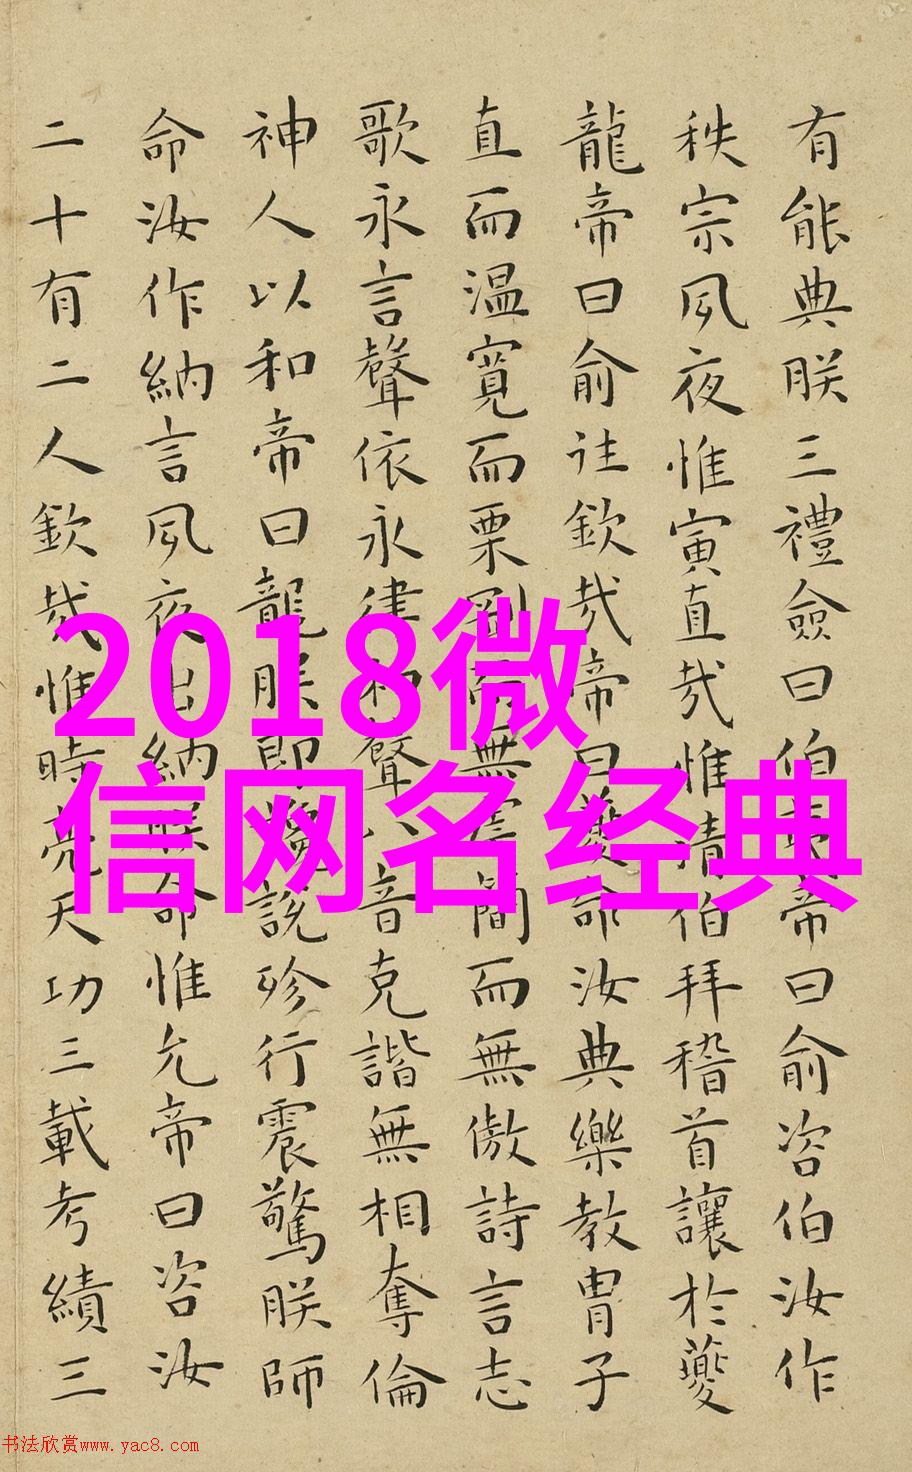 有能典朕三禮僉曰伯夷帝曰俞咨伯汝作
秩宗夙夜惟寅直哉惟清伯拜稽首讓於夔
龍帝曰俞往欽哉帝曰夔命汝典樂教胄子
直而温寬而栗剛而無虐簡而無傲詩言志
歌永言聲依永律和聲八音克諧無相奪倫
神人以和帝曰龍朕即說殄行震驚朕師
命汝作納言夙夜出納朕命惟允帝曰咨汝
二十有二人欽哉惟時亮天功三載考績三
2018微
信网名经典
书法欣赏www.yac8.com